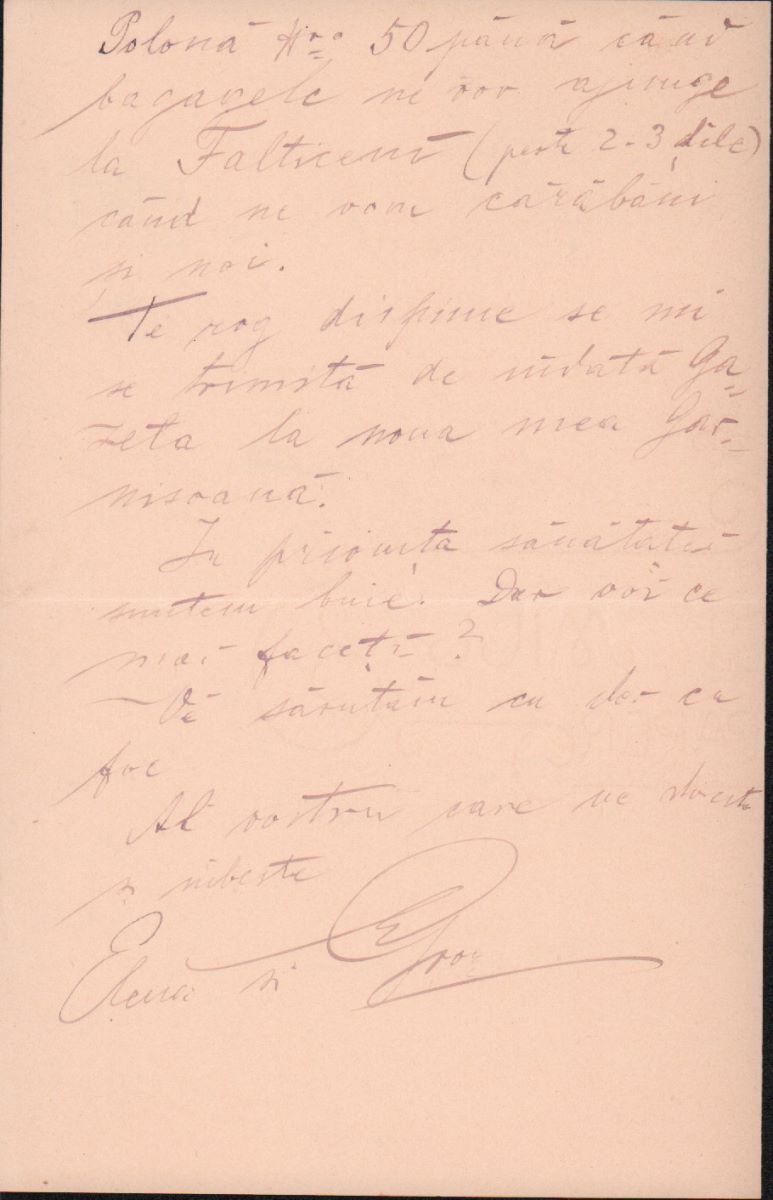 Polonă Nro 50 până când
bagagele ne vor ajunge
la Falticeni (peste 2-3 dile)
când ne vom cărăbăni
și noi.
Te rog dispune se mi
se trimită de îndată Ga=
zeta la noua mea Gar=
nisoană.
In privința sănătatei
suntem bine. Dar voi ce
mai faceți?
Vă sărutăm cu dor cu
foc
Al vostru care ve doreste
și iubeste
Elena si